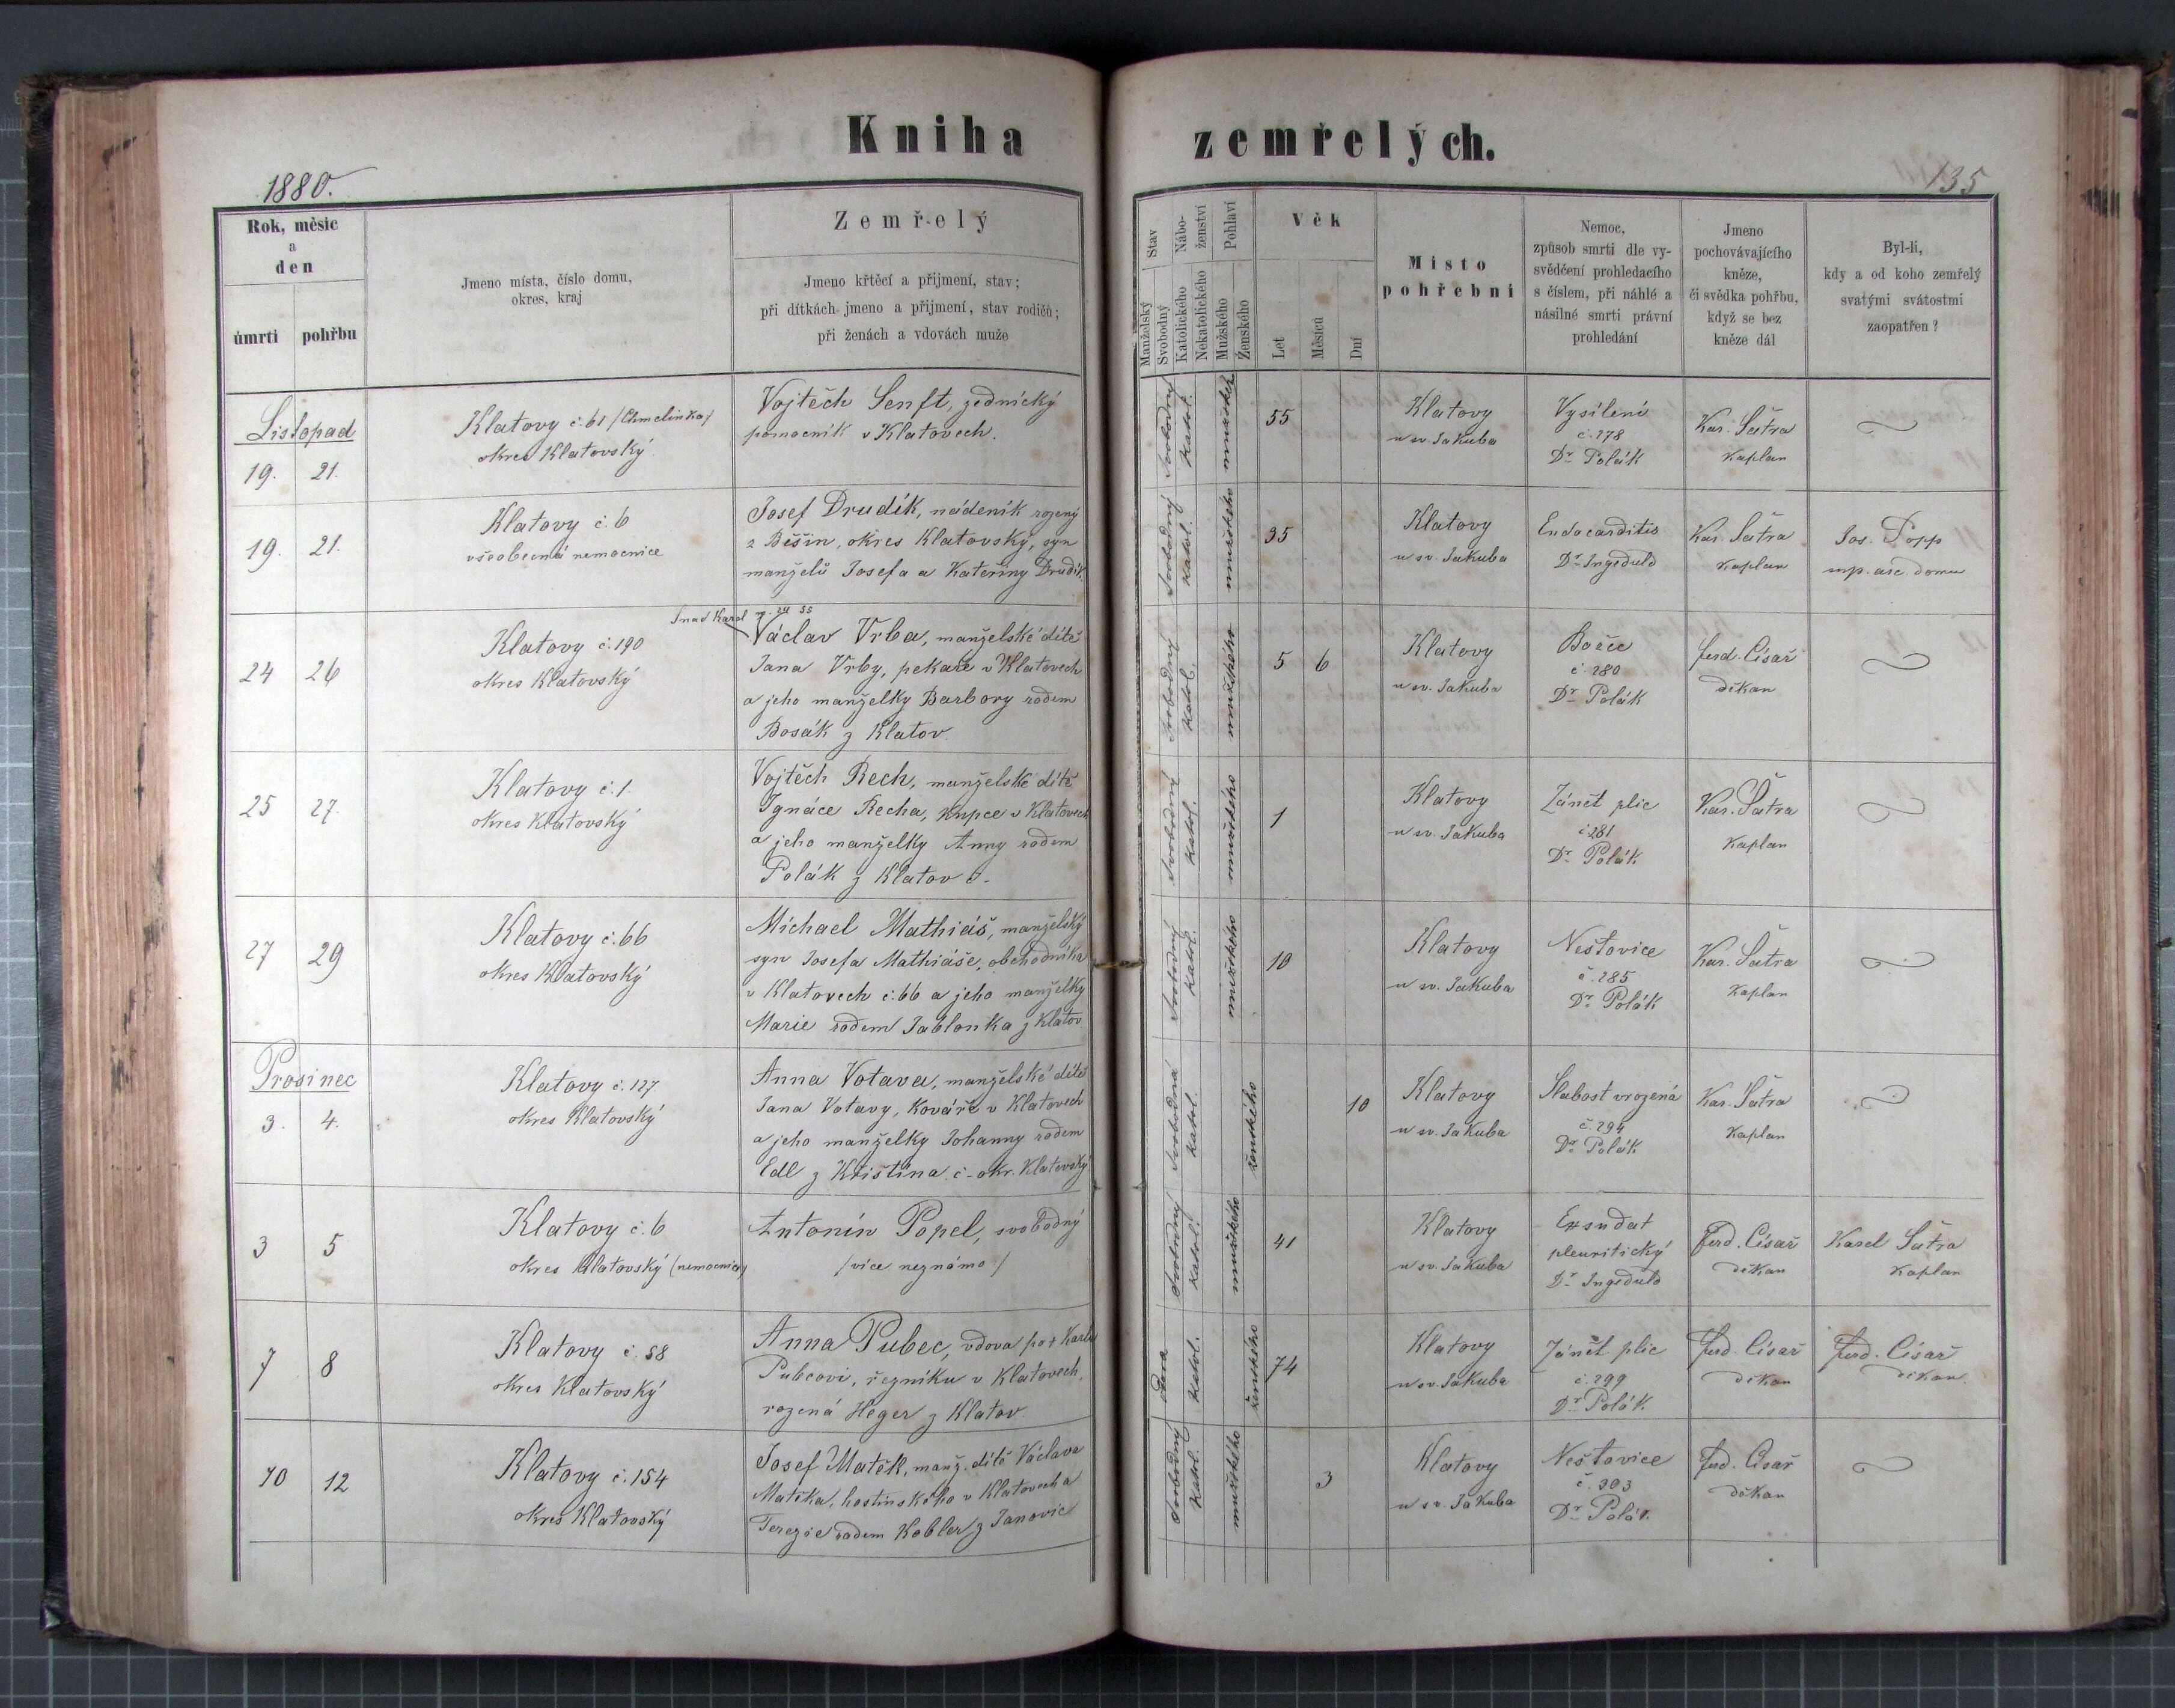 Kniha zemřelých.
1880.
135
Rok, měsíc
a
den
úmrtí pohřbu
Jmeno místa, číslo domu,
okres, kraj
Zemřelý
Jmeno křtěcí a přijmení, stav;
při dítkách jmeno a přijmení, stav rodičů;
při ženách a vdovách muže
Stav
Manželský
Svobodný
Nábo-
ženství
Katolického
Nekatolického
Pohlaví
Mužského
Ženského
Věk
Let
Měsíců
Dní
Místo
pohřební
Nemoc,
způsob smrti dle vy-
svědčení prohledacího
s číslem, při náhlé a
násilné smrti právní
prohledání
Jmeno
pochovávajícího
kněze,
či svědka pohřbu,
když se bez
kněze dál
Byl-li,
kdy a od koho zemřelý
svatými svátostmi
zaopatřen?
Listopad
19. 21.
Klatovy č. 61 /Chmelinka/
okres Klatovský
Vojtěch Senft, zednický
pomocník v Klatovech.
Svobodný
katol.
mužského
55
Klatovy
u sv. Jakuba
Vysílení
č. 278
Dr. Polák
Kar. Šatra
kaplan
19. 21.
Klatovy č. 6
všeobecná nemocnice
Josef Drudík, nádeník rozený
z Běšin, okres Klatovský, syn
manželů Josefa a Kateřiny Drudík.
Svobodný
katol.
mužského
35
Klatovy
u sv. Jakuba
Endocarditis
Dr. Ingeduld
Kar. Šatra
kaplan
Jos. Popp
domu
24 26
Klatovy č. 190
okres Klatovský
Snad Karel
Václav Vrba, manželské dítě
Jana Vrby, pekaře v Klatovech
a jeho manželky Barbory rodem
Bosák z Klatov.
Svobodný
katol.
mužského
5 6
Klatovy
u sv. Jakuba
č. 280
Dr. Polák
Ferd. Císař
děkan
25 27.
Klatovy č. 1.
okres Klatovský
Vojtěch Rech, manželské dítě
Ignáce Recha, kupce v Klatovech
a jeho manželky Anny rodem
Polák z Klatov č.
Svobodný
katol.
mužského
1
Klatovy
u sv. Jakuba
Zánět plic
č. 281
Dr. Polák
Kar. Šatra
kaplan
27 29
Klatovy č. 66
okres Klatovský
Michael Mathiáš, manželský
syn Josefa Mathiáše, obchodníka
v Klatovech č. 66 a jeho manželky
Marie rodem Jablonka z Klatov
Svobodný
katol.
mužského
10
Klatovy
u sv. Jakuba
Neštovice
č. 285
Dr. Polák
Kar. Šatra
kaplan
Prosinec
3. 4.
Klatovy č. 127
okres Klatovský
Anna Votava, manželské dítě
Jana Votavy, kováře v Klatovech
a jeho manželky Johanny rodem
Edl z Křištína č - okr. Klatovský
Svobodná
katol.
ženského
10
Klatovy
u sv. Jakuba
Slabost vrozená
č. 294
Dr. Polák
Kar. Šatra
kaplan
3 5
Klatovy č. 6
okres Klatovský (nemocnice)
Antonín Popel, svobodný
/více neznámo/
Svobodný
katol.
mužského
41
Klatovy
u sv. Jakuba
Exsudat
pleuritický
Dr. Ingeduld
Ferd. Císař
děkan
Karel Šatra
kaplan
7 8
Klatovy č. 58
okres Klatovský
Anna Pubec, vdova po † Karlu
Pubcovi, řezníku v Klatovech,
rozená Heger z Klatov.
vdova
katol.
ženského
74
Klatovy
u sv. Jakuba
Zánět plic
č. 299
Dr. Polák
Ferd. Císař
děkan
Ferd. Císař
děkan.
10 12
Klatovy č. 154
okres Klatovský
Josef Matěk, manž. dítě Václava
Matěka, hostinského v Klatovech a
Terezie rodem Kobler z Janovic
Svobodný
katol.
mužského
3
Klatovy
u sv. Jakuba
Neštovice
č. 303
Dr. Polák.
Ferd. Císař
děkan